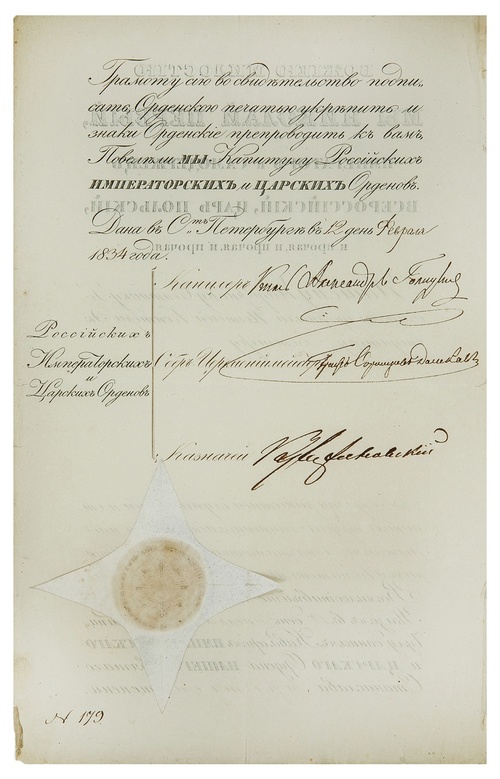 Грамоту сію во свидѣтельство подпи-
сать, Орденскою печатью укрѣпить и
знаки Орденскіе препроводить къ вамъ,
Повелѣли МЫ Капитулу Россійскихъ
ИМПЕРАТОРСКИХЪ и ЦАРСКИХЪ Орденовъ.
Дана въ С.тъ Петербургѣ въ 12 день Февраля
1834 года.
Канцлеръ Князь Александръ Голицынъ
Россійскихъ
Императорскихъ
и
Царскихъ Орденовъ
Оберъ Церемоніймейстеръ Графъ
Казначей
N 179